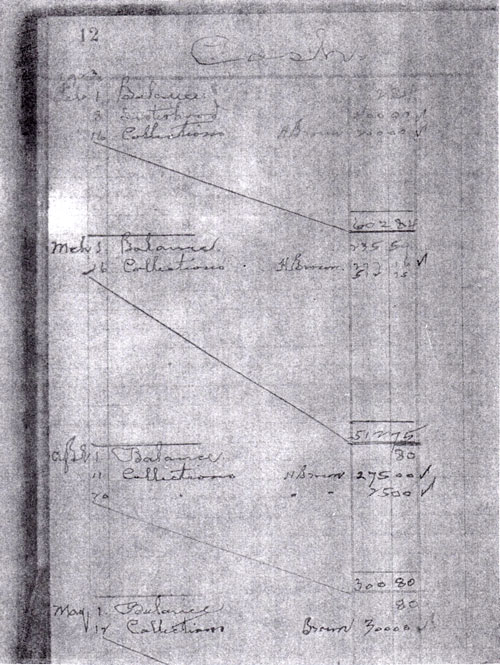 12
Cash.
Feb 1 Balance 2 84
8 Sisterhood 400 00 ✓
16 Collections H Brown 200 00 ✓
602 84
Mch 1 Balance
26 Collections H Brown ✓
512 75
Apl 1 Balance 80
11 Collections H Brown 275 00 ✓
20 " " " 25 00 ✓
300 80
May 1 Balance 80
17 Collections Brown 300 00 ✓